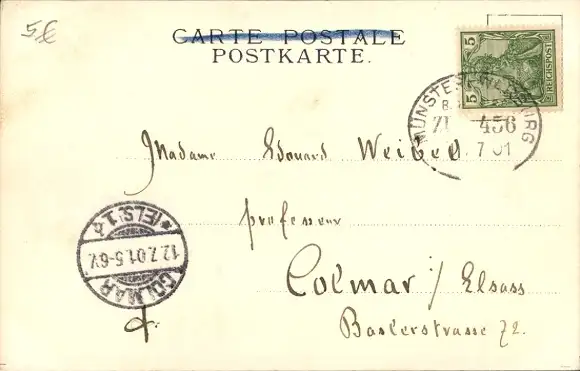 5 €
CARTE POSTALE
POSTKARTE.
5 5
REICHSPOST
MÜNSTER
456
7 01
Madame Edouard Weibel
professeur
Colmar / Elsass
Baslerstrasse 72.
COLMAR
12.7.01.5-6V.
* (ELS.) 1.